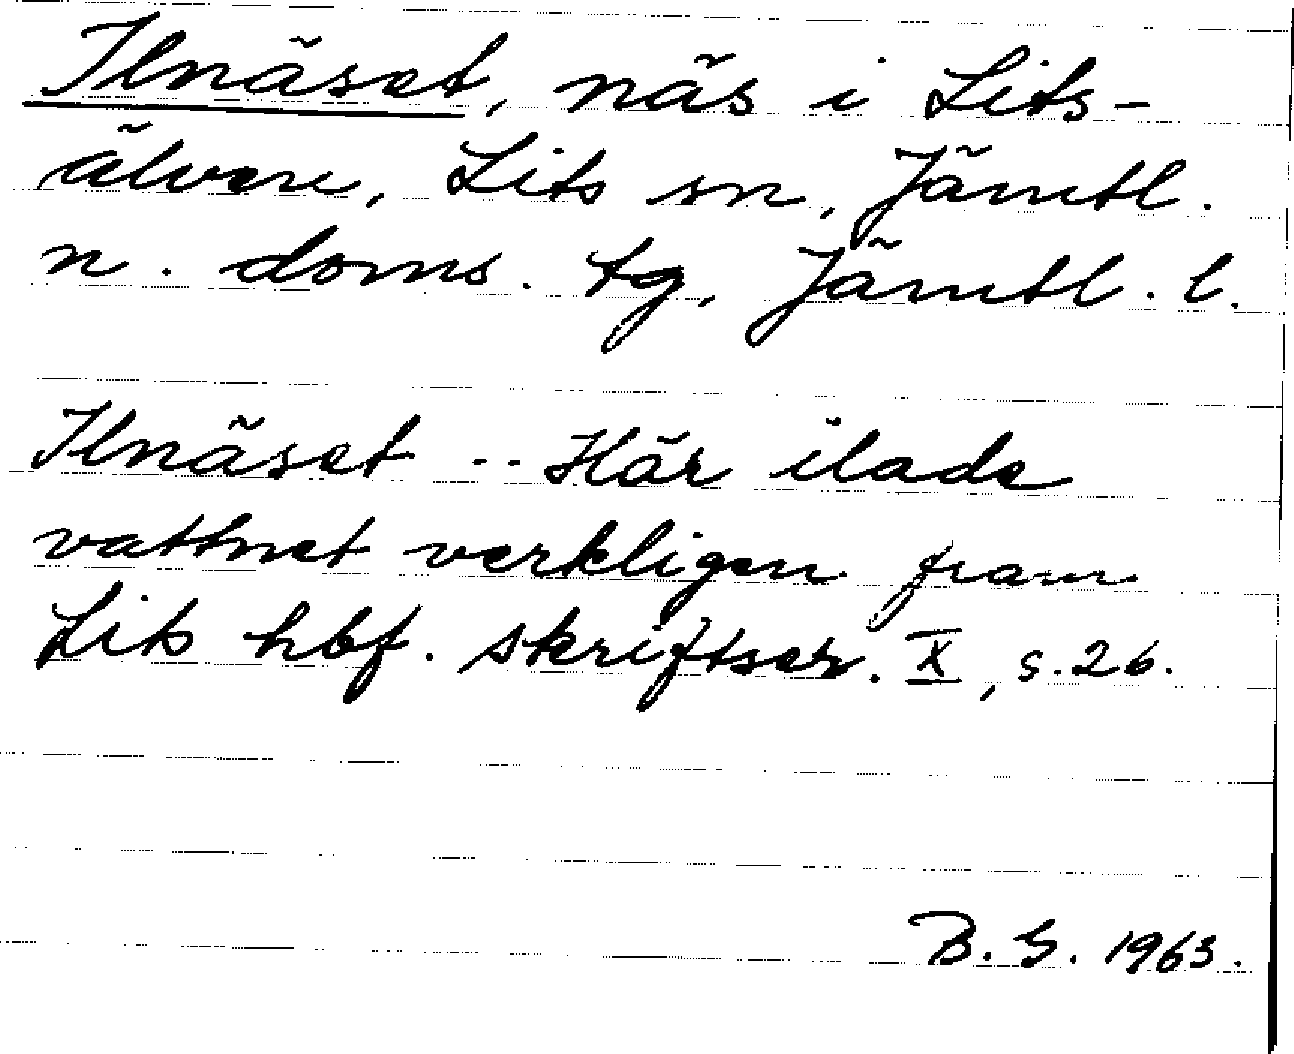 Ilnäset, näs i Lits-
älven, Lits sn, Jämtl.
n. doms. tg, Jämtl. l.
Ilnäset .. Här ilade
vattnet verkligen fram
Lits hbf. skriftser. X, s. 26.
B. G. 1963.